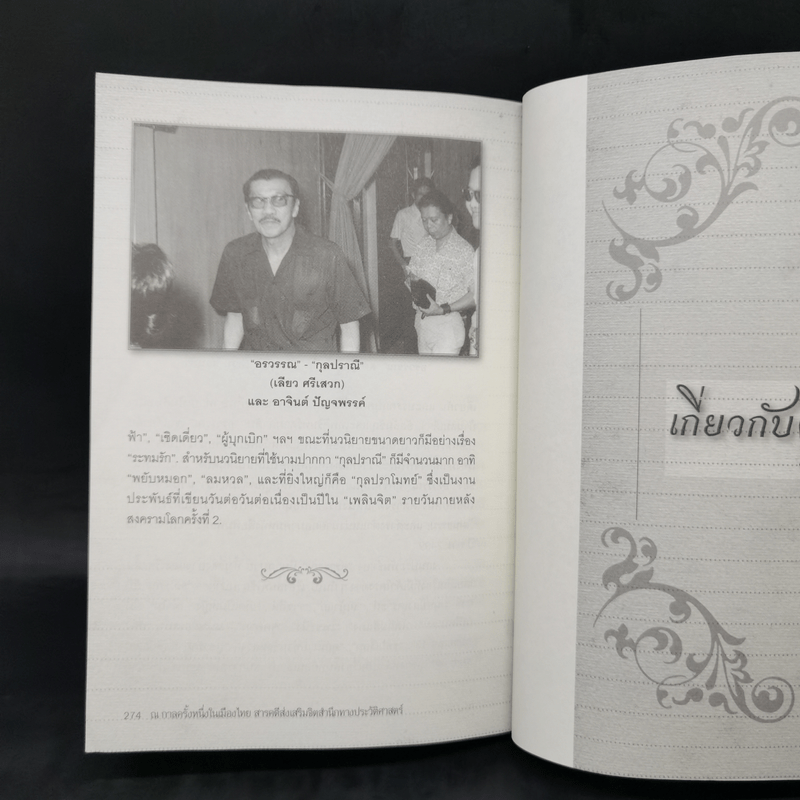 "อรวรรณ" - "กุลปราณี"
(เลียว ศรีเสวก)
และ อาจินต์ ปัญจพรรค์
ฟ้า", "เชิดเดี่ยว", "ผู้บุกเบิก" ฯลฯ ขณะที่นวนิยายขนาดยาวก็มีอย่างเรื่อง
"ระทมรัก". สำหรับนวนิยายที่ใช้นามปากกา "กุลปราณี" ก็มีจำนวนมาก อาทิ
"พยับหมอก", "ลมหวล", และที่ยิ่งใหญ่ก็คือ "กุลปราโมทย์" ซึ่งเป็นงาน
ประพันธ์ที่เขียนวันต่อวันต่อเนื่องเป็นปีใน "เพลินจิต" รายวันภายหลัง
สงครามโลกครั้งที่ 2.
274 ณ กาลครั้งหนึ่งในเมืองไทย สารคดีส่งเสริมจิตสำนึกทางประวัติศาสตร์
เกี่ยวกับ